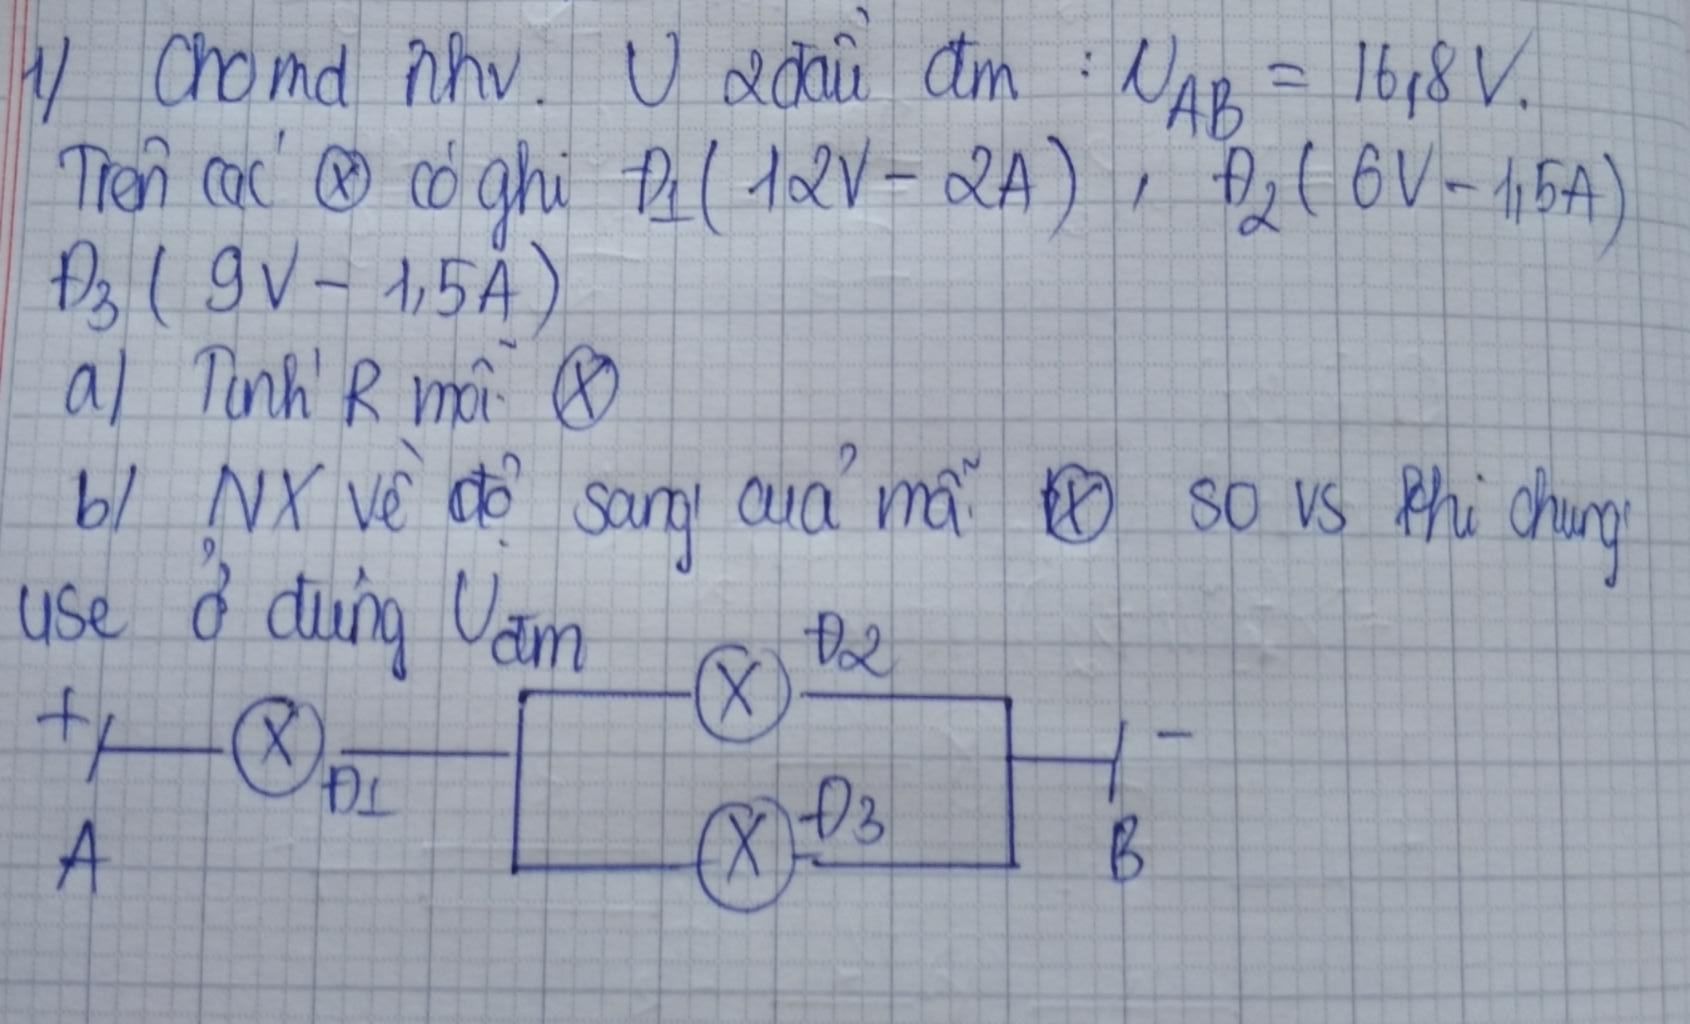 1/ Cho md nhv. U 2 đầu đm : UAB = 16,8V.
Trên các ⊗ có ghi Đ1 ( 12V - 2A ) , Đ2 ( 6V - 1,5A )
Đ3 ( 9V - 1,5A )
a/ Tính R mỗi ⊗
b/ NX về độ sáng của mỗi ⊗ so vs khi chúng
use ở đúng Uđm
Đ2
+ X X -
Đ1
Đ3
A X B